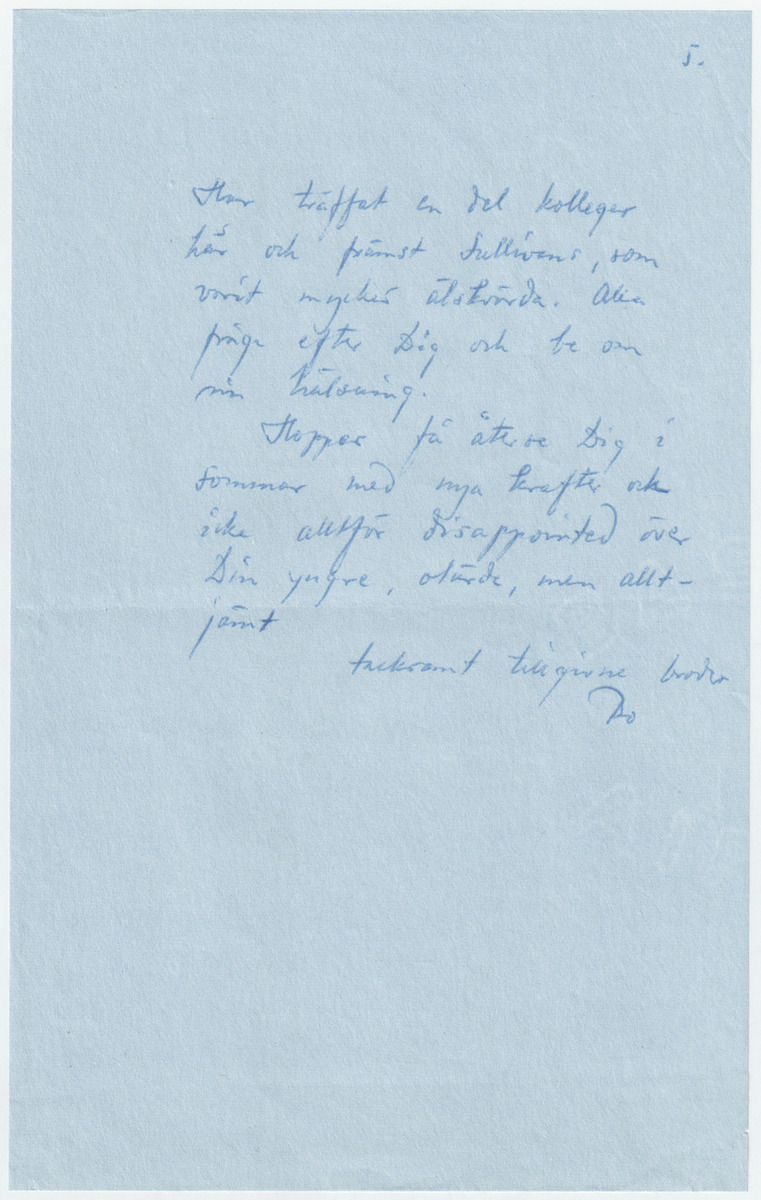 5.
Har träffat en del kolleger
här och främst Sullivans, som
varit mycket älskvärda. Alla
fråga efter Dig och be om
sin hälsning.
Hoppas få återse Dig i
sommar med nya krafter och
icke alltför disappointed över
Din yngre, olärde, men allt-
jämt
tacksamt tillgivne broder
Bo